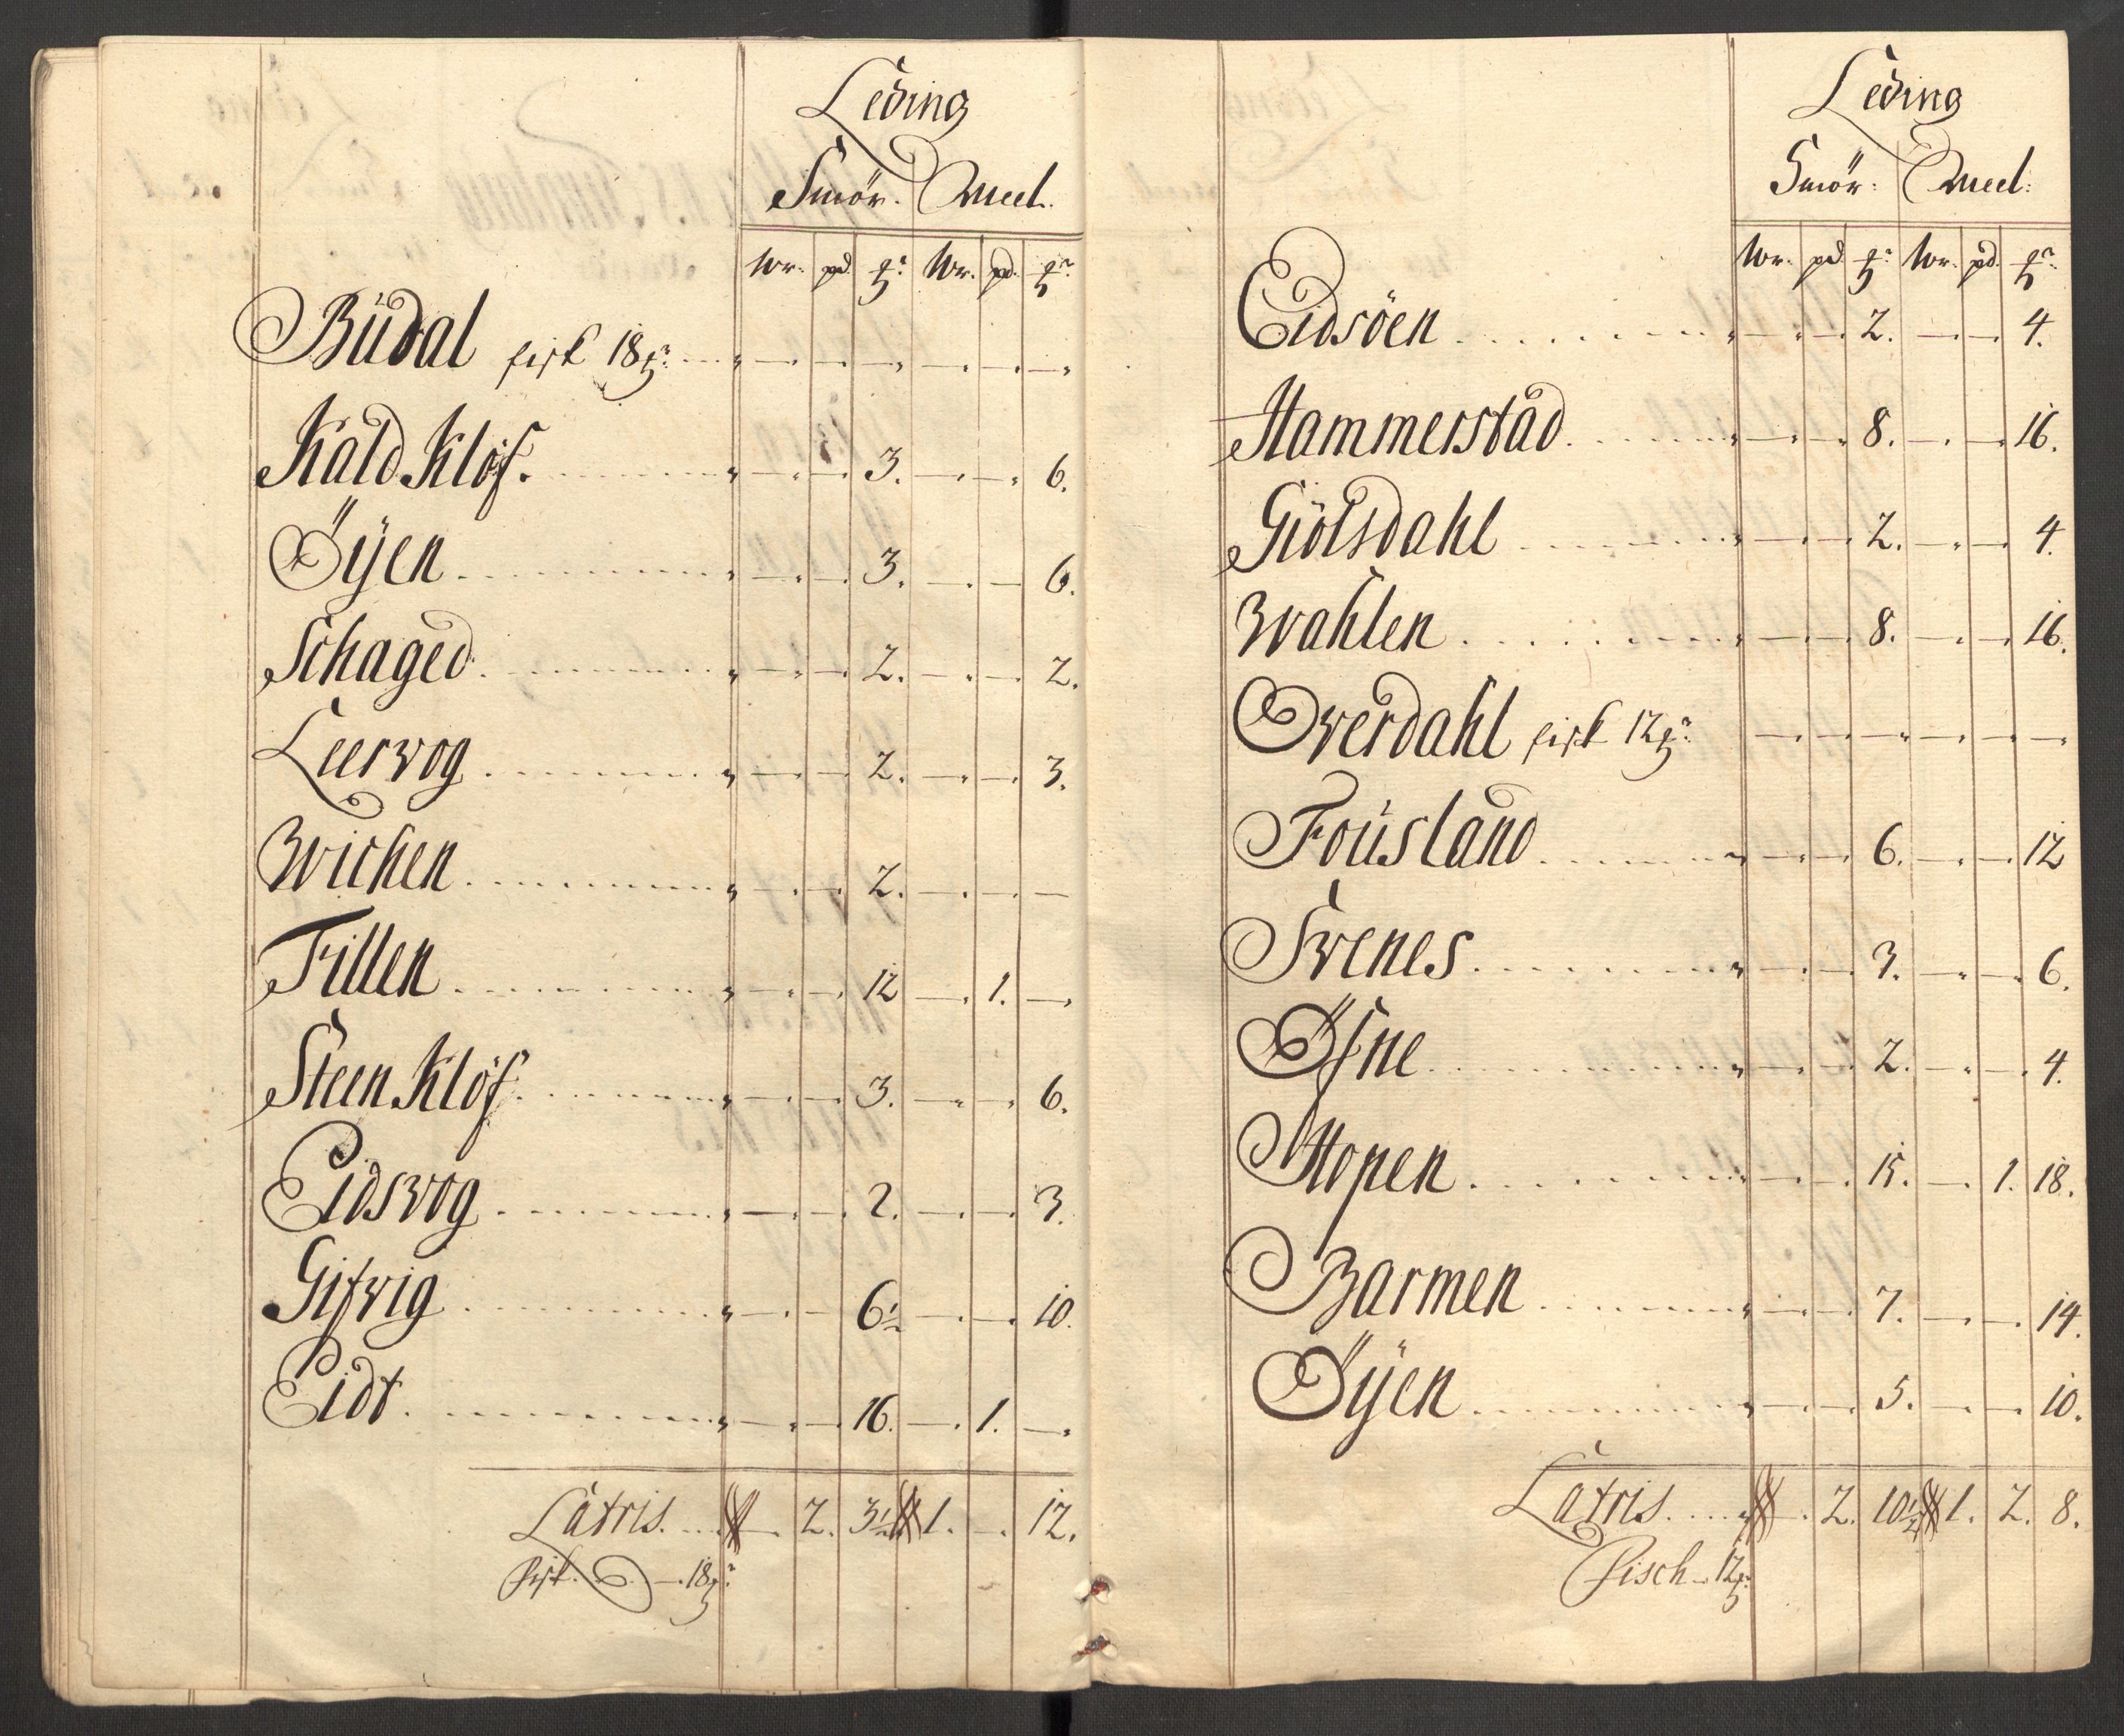 Leding
Smör. Meel.
wr. pd. ℔r. wr. pd. ℔r.
Büdal fisk 18 ℔r.
Kald Klöf. 3. 6.
Öÿen 3. 6.
Schaged. 2. 2.
Leervog 2. 3.
Wichen. 2.
Fillen 12 1.
Steen Klöf. 3. 6.
Eidsvog 2. 3.
Gifvig 6½ 10.
Eidt. 16. 1.
Latris. 2. 3½ 1. 12.
fisk. 18 ℔r.
Leding
Smör: Meel:
wr. pd. ℔r. wr. pd. ℔r.
Eidsöen 2. 4.
Hammerstad. 8. 16.
Giölsdahl 2. 4.
Wahlen 8. 16.
Overdahl fisk 12 ℔r.
Foüsland 6. 12
Svenes. 3. 6.
Öfne 2. 4.
Hopen 15. 1. 18.
Barmen 7. 14.
Öÿen 5. 10.
Latris. 2. 10½ 1. 2. 8.
Fisch 12 ℔r.